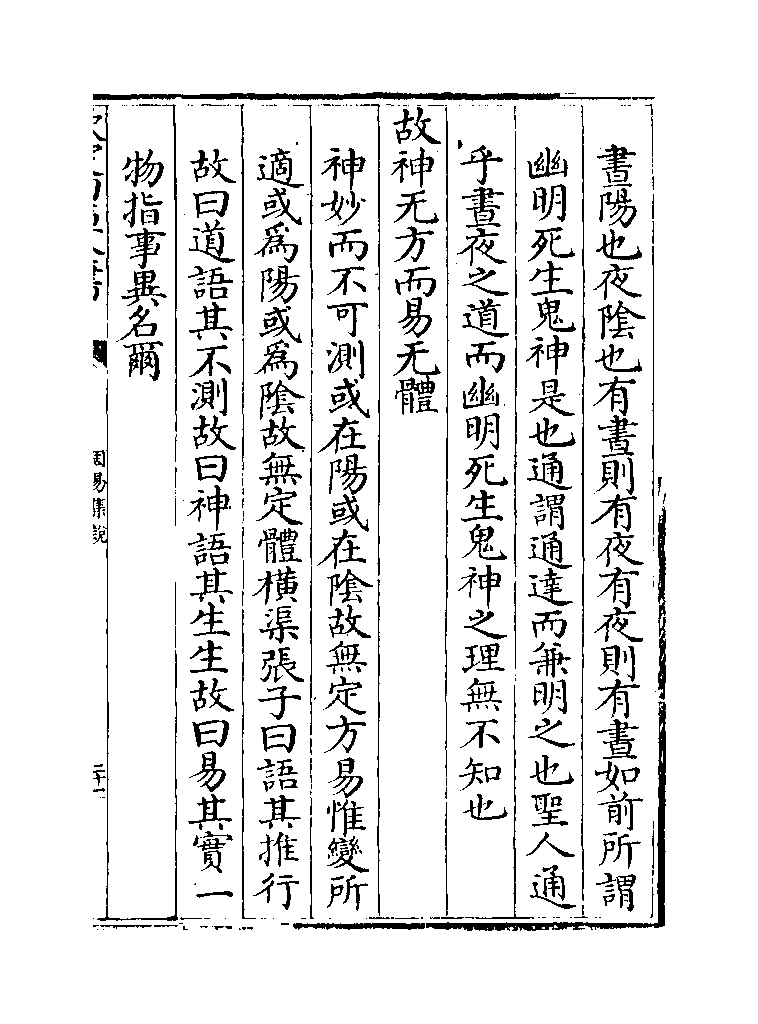 晝陽也夜陰也有晝則有夜有夜則有晝如前所謂
幽明死生鬼神是也通謂通達而兼明之也聖人通
乎晝夜之道而幽明死生鬼神之理無不知也
故神无方而易无體
神妙而不可測或在陽或在陰故無定方易惟變所
適或爲陽或爲陰故無定體橫渠張子曰語其推行
故曰道語其不測故曰神語其生生故曰易其實一
物指事異名爾
周易集說
二十一